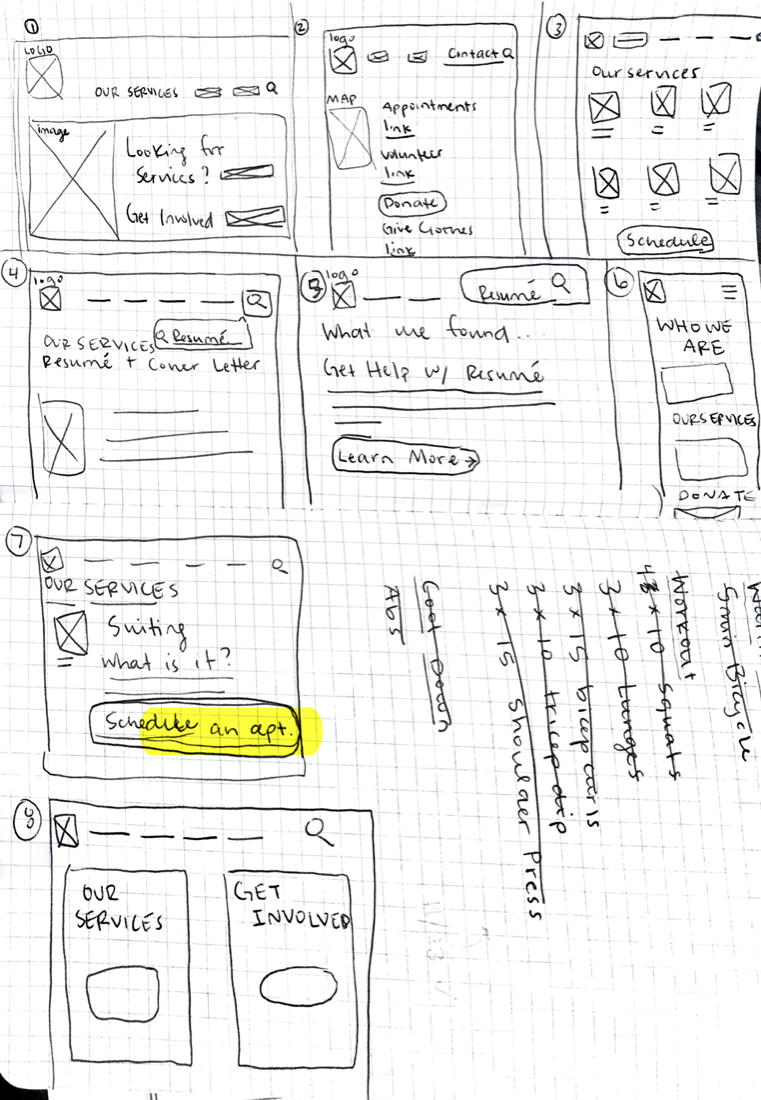 1
LOGO
OUR SERVICES
image
Looking for
Services?
Get Involved
2
logo
Contact
MAP
Appointments
link
Volunteer
link
Donate
Give Clothes
link
3
Our services
Schedule
4
logo
Resumé
OUR SERVICES
Resumé + Cover Letter
5
logo
Resumé
What we found...
Get Help w/ Resumé
Learn More →
6
WHO WE
ARE
OUR SERVICES
DONATE
7
OUR SERVICES
Suiting
What is it?
Schedule an apt.
5 min Bicycle
Workout
4 x 10 squats
3 x 10 lunges
3 x 15 bicep curls
3 x 10 tricep dip
3 x 15 Shoulder Press
Cool Down
Abs
8
OUR
SERVICES
GET
INVOLVED